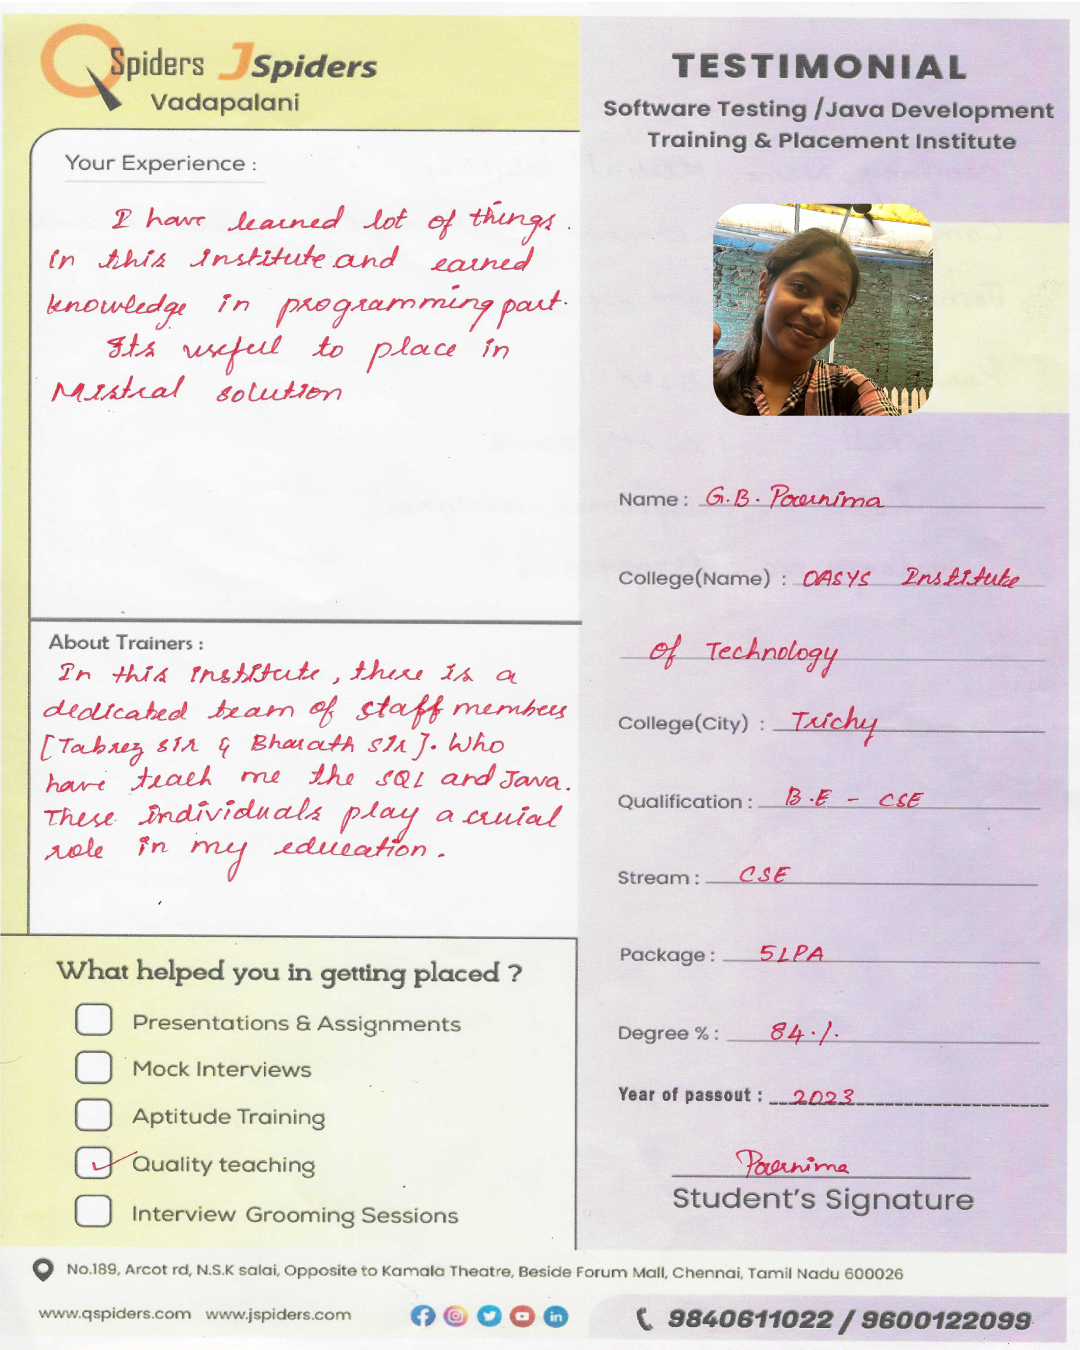 QSpiders JSpiders
Vadapalani
TESTIMONIAL
Software Testing /Java Development
Training & Placement Institute
Your Experience :
I have learned lot of things.
in this institute and earned
knowledge in programming part.
Its useful to place in
Mistral solution
Name : G.B. Pournima
College(Name) : OASYS Institute
of Technology
College(City) : Trichy
Qualification : B.E - CSE
Stream : CSE
Package : 5LPA
Degree % : 84%
Year of passout : 2023
Pournima
Student's Signature
About Trainers :
In this institute, there is a
dedicated team of staff members
[Tabrez sir & Bharath sir]. Who
have teach me the SQL and Java.
These individuals play a cruial
role in my education.
What helped you in getting placed ?
Presentations & Assignments
Mock Interviews
Aptitude Training
Quality teaching
Interview Grooming Sessions
No.189, Arcot rd, N.S.K salai, Opposite to Kamala Theatre, Beside Forum Mall, Chennai, Tamil Nadu 600026
www.qspiders.com www.jspiders.com
9840611022 / 9600122099